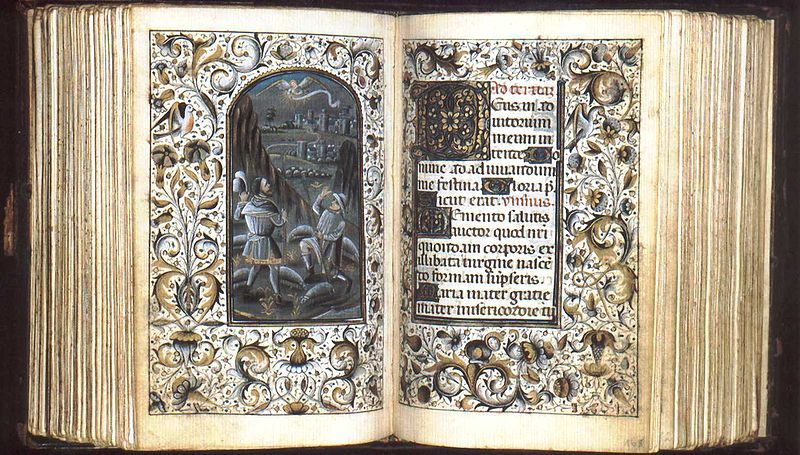 Ad tertiā
Deus in ad
iutorium
meum in
tende Do
mine ad adiuuandum
me festina Gloria p
Sicut erat. ymnus.
Memento salutis
auctor quod nri
quondam corporis ex
illibata uirgine nascē
do formam supseris
Maria mater gratie
mater misericordie tu